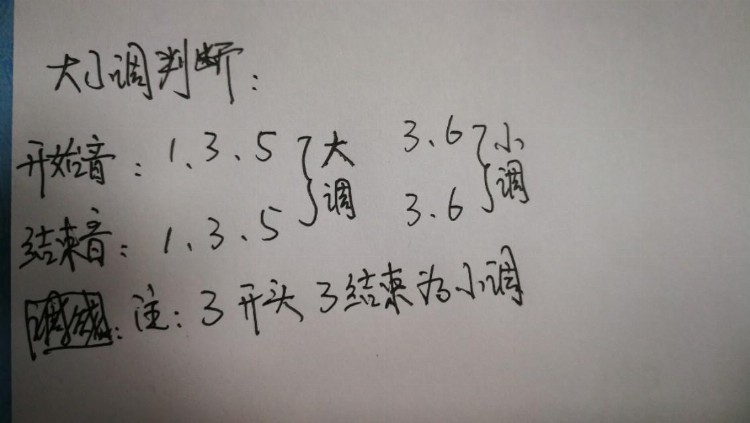 大小调判断：
开始音：1、3、5 }大调 3.6 }小调
结束音：1、3、5 3.6
注：3开头3结束为小调